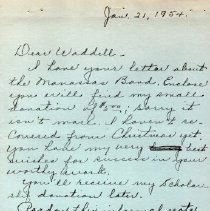 Jan. 21, 1954.
Dear Waddell -
I have your letter about
the Manassas Band. Enclose
you will find my small
donation $5.00; sorry it
isn't more. I haven't re-
covered from Christmas yet.
You have my very best
wishes for success in your
worthy work.
You'll receive my Scholar-
ship donation later.
Pardon this informal note